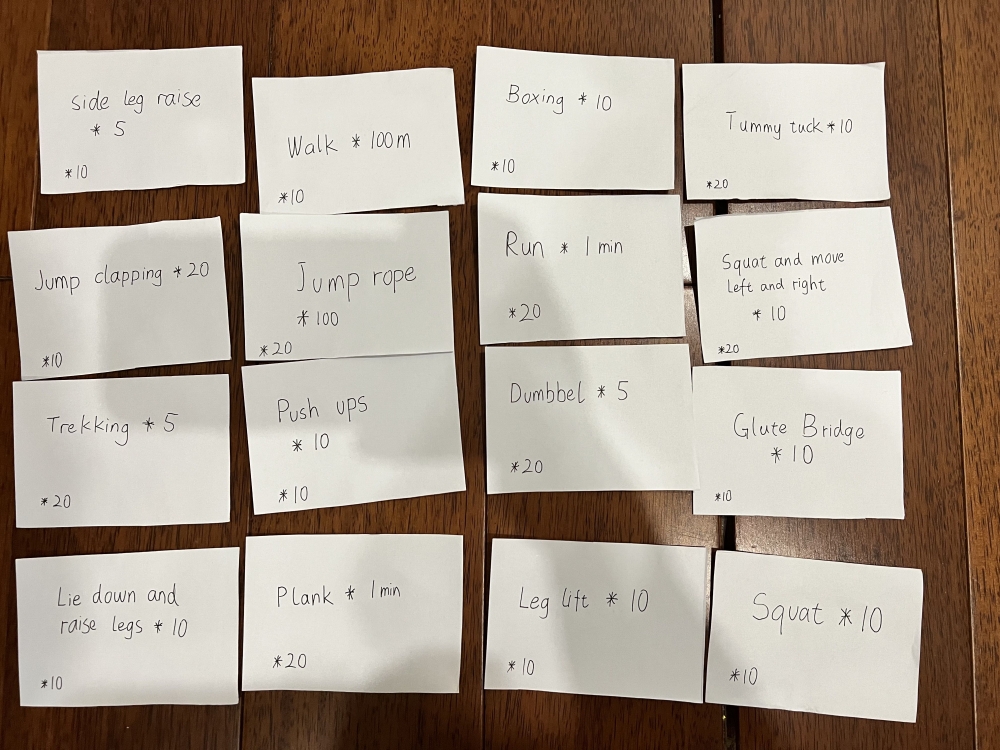 side leg raise
* 5
*10
Walk * 100m
*10
Boxing * 10
*10
Tummy tuck * 10
*20
Jump clapping * 20
*10
Jump rope
* 100
*20
Run * 1 min
*20
Squat and move
left and right
* 10
*20
Trekking * 5
*20
Push ups
* 10
*10
Dumbbel * 5
*20
Glute Bridge
* 10
*10
Lie down and
raise legs * 10
*10
Plank * 1 min
*20
Leg lift * 10
*10
Squat * 10
*10